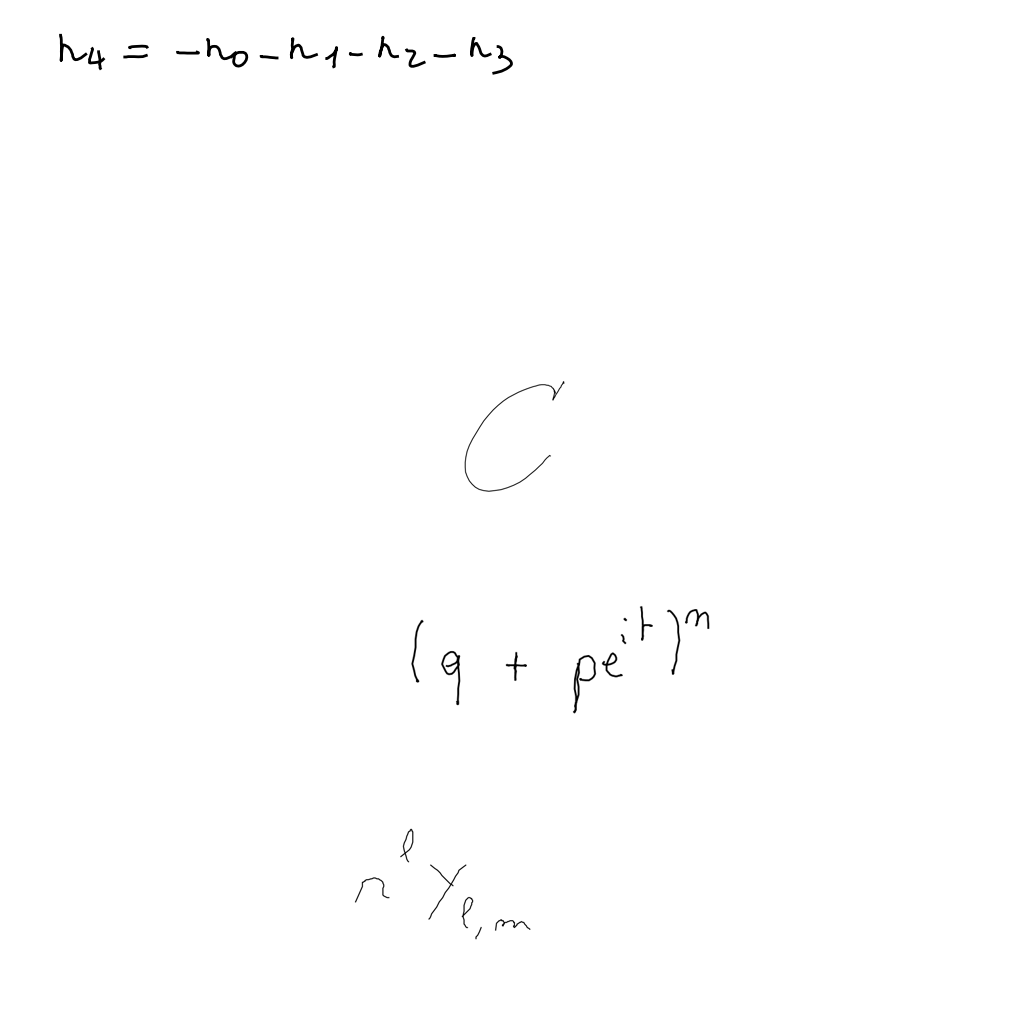 h_4 = -h_0 - h_1 - h_2 - h_3
C
(q + pe^{it})^n
r^ℓ Y_{ℓ,m}